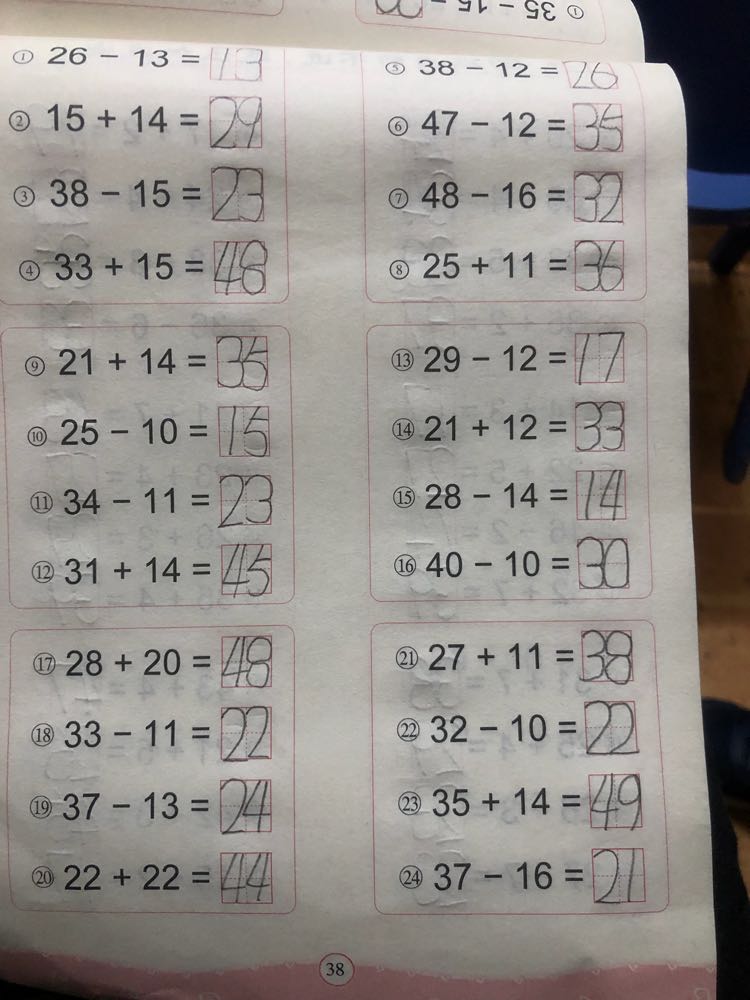 ① 35 − 15 =
① 26 − 13 = 13
② 15 + 14 = 29
③ 38 − 15 = 23
④ 33 + 15 = 48
⑤ 38 − 12 = 26
⑥ 47 − 12 = 35
⑦ 48 − 16 = 32
⑧ 25 + 11 = 36
⑨ 21 + 14 = 35
⑩ 25 − 10 = 15
⑪ 34 − 11 = 23
⑫ 31 + 14 = 45
⑬ 29 − 12 = 17
⑭ 21 + 12 = 33
⑮ 28 − 14 = 14
⑯ 40 − 10 = 30
⑰ 28 + 20 = 48
⑱ 33 − 11 = 22
⑲ 37 − 13 = 24
⑳ 22 + 22 = 44
㉑ 27 + 11 = 38
㉒ 32 − 10 = 22
㉓ 35 + 14 = 49
㉔ 37 − 16 = 21
38